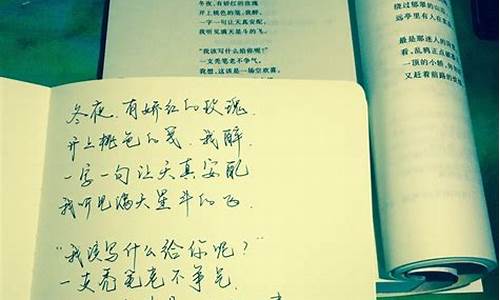 冬夜,有娇红的玫瑰
开上桃色的笺,我醉,
一字一句让天真安配,
我听见满天星斗的飞。
“我该写什么给你呢?”
一支秃笔老不争气。
我想,这该是一场空欢喜。
绕过郁翠的山
远亭里有人在
最是那迷人的
看,乱鸦正点
一顶的小轿,
又赶着前路的
冬夜,有娇红的玫瑰,
开上桃色的笺,我醉,
一字一句让天真安配
我听见满天星斗的飞
“我该写什么给你呢?”
一支秃笔老不争气,